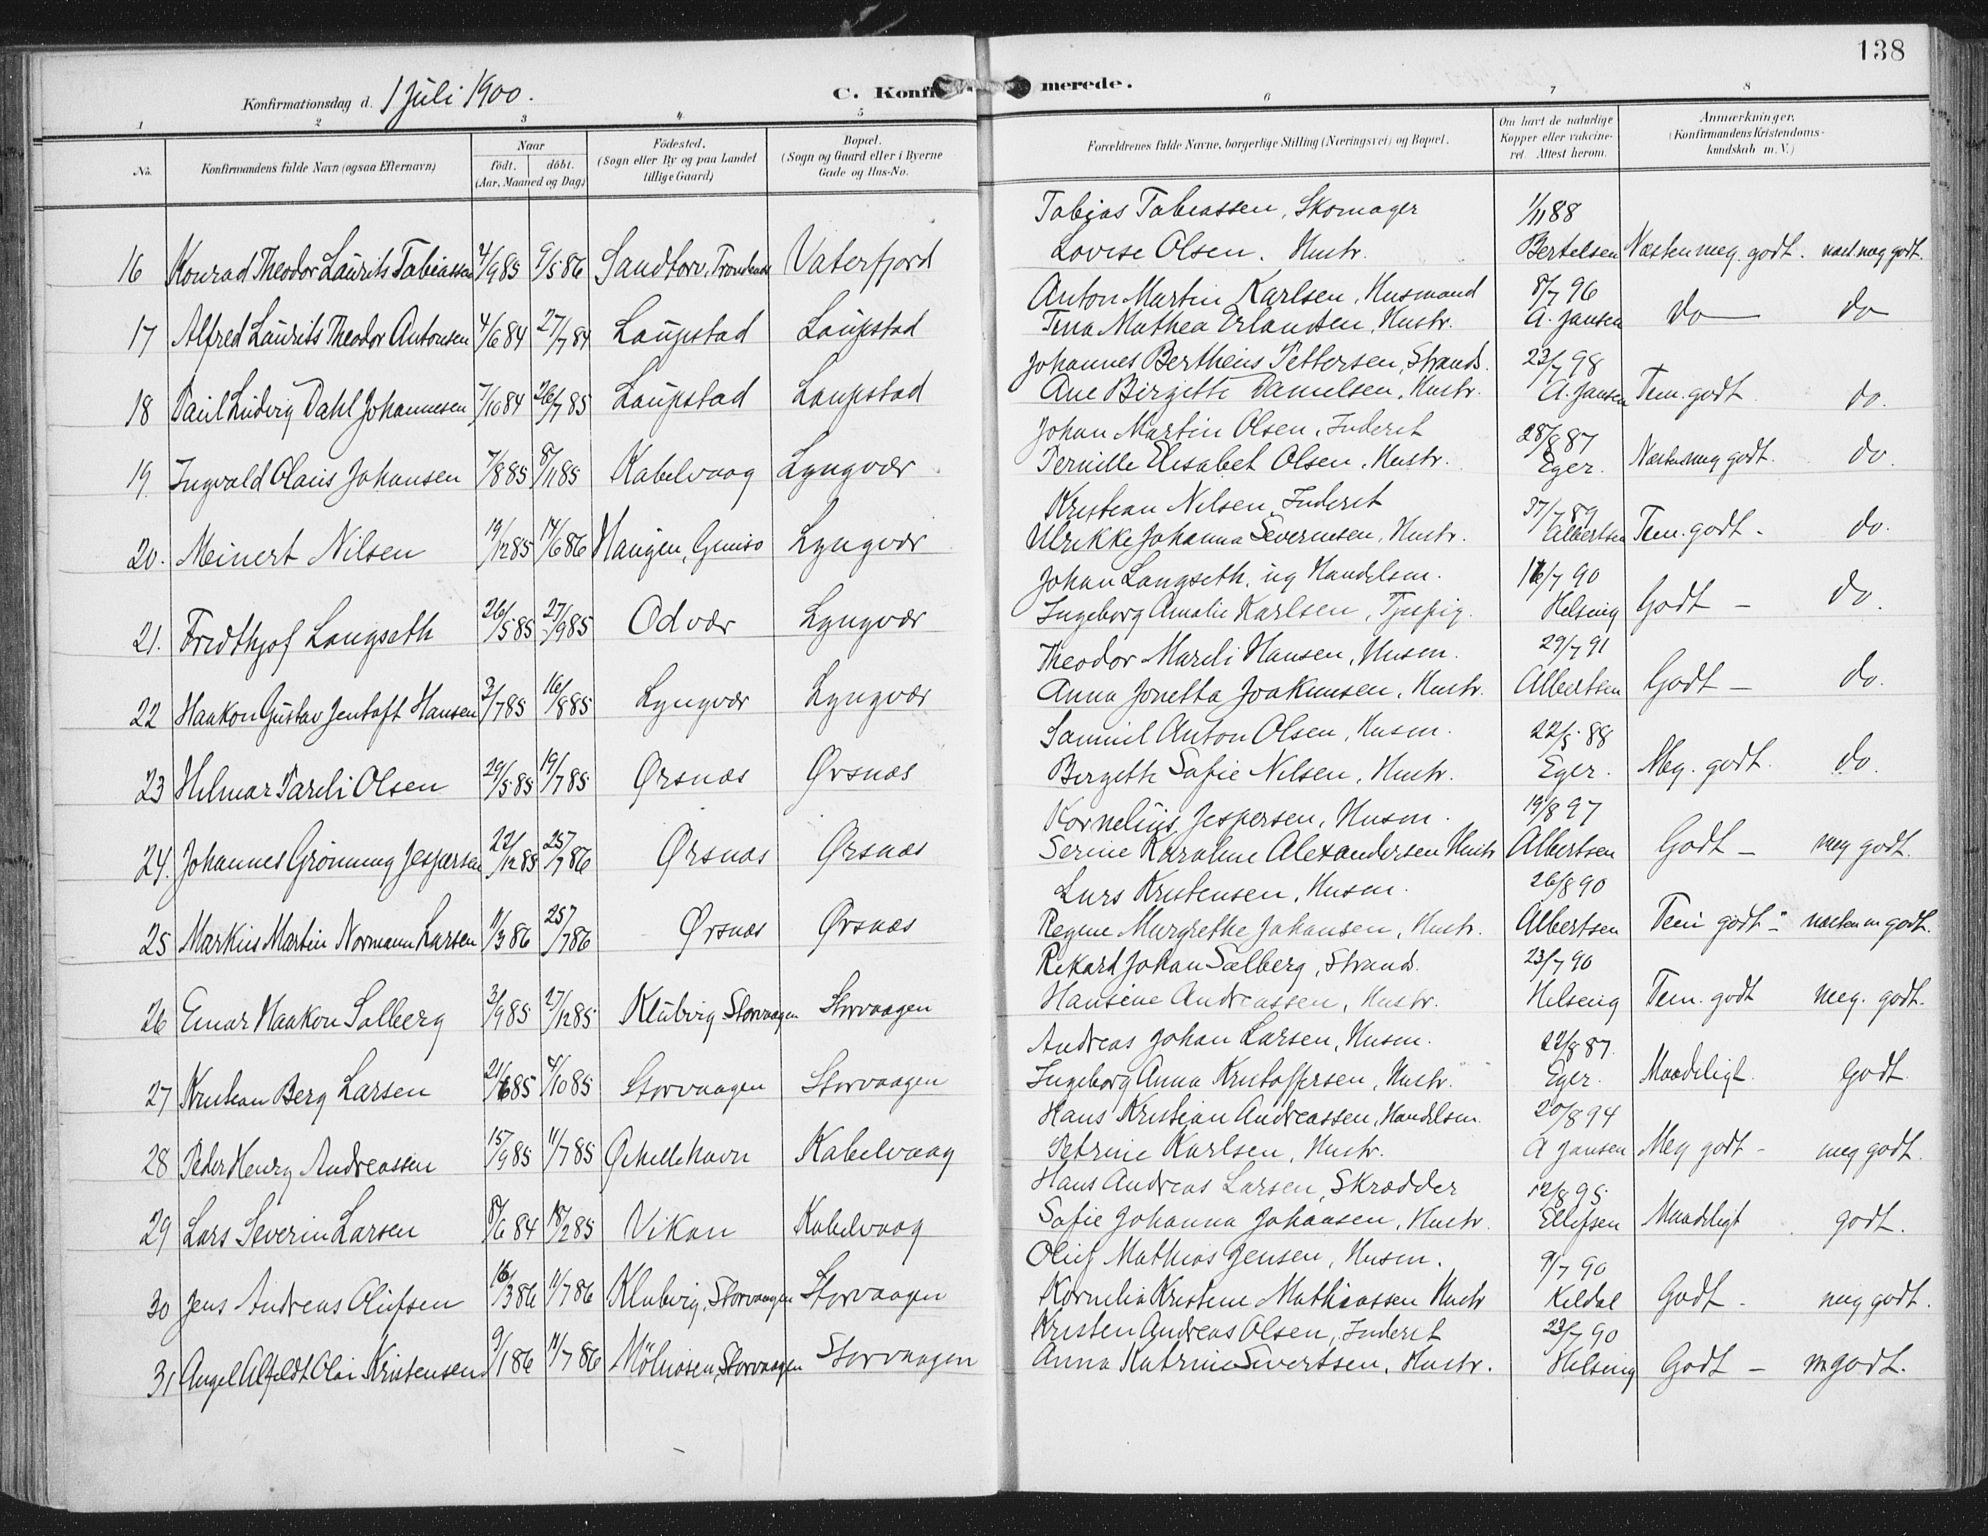 138
Konfirmationsdag d. 1 Juli 1900.
C. Konfirmerede.
1 2 3 4 5 6 7 8
No.
Konfirmandens fulde Navn (ogsaa Efternavn)
Naar
födt. döbt.
(Aar, Maaned og Dag)
Födested.
(Sogn eller By og paa Landet
tillige Gaard)
Bopæl.
(Sogn og Gaard eller i Byerne
Gade og Hus-No.
Forældrenes fulde Navne, borgerlige Stilling (Næringsvei) og Bopæl.
Om havt de naturlige
Kopper eller vakcine-
ret. Attest herom.
Anmærkninger.
(Konfirmandens Kristendoms-
kundskab m. V.)
Tobias Tobiassen, Skomager 1/11 88
16 Konrad Theodor Laurits Tobiassen 4/9 85 9/5 86 Sandtorv, Trondenes Vaterfjord Lovise Olsen. Hustr. Bertelsen Næsten meg. godt. næst. meg godt.
Anton Martin Karlsen, Husmand 8/7 96
17 Alfred Laurits Theodor Antonsen 4/6 84 27/7 84 Laupstad Laupstad Tina Mathea Erlandsen, Hustr. A. Jansen do do
Johannes Bertheus Pettersen, Strands. 23/7 98
18 Paul Ludvig Dahl Johannesen 7/10 84 26/7 85 Laupstad Laupstad Ane Birgitte Danielsen, Hustr. A. Jansen Tem. godt do.
Johan Martin Olsen, Inderst 28/8 87
19. Ingvald Olaus Johansen 7/8 85 8/11 85 Kabelvaag Lyngvær Pernille Elisabet Olsen, Hustr. Eger. Næsten meg godt. do.
Kristian Nilsen, Inderst
20. Meinert Nilsen 19/12 85 14/6 86 Haugen, Gimsø Lyngvær Ulrikke Johanna Severinsen, Hustr. Albertsen Tem. godt - do.
Johan Langseth, ug Handelsm. 16/7 90
21. Fredthjof Langseth 26/5 85 27/9 85 Odvær Lyngvær Ingeborg Amalie Karlsen, Tjspig. Helseng Godt - do.
Theodor Mareli Hansen, Husm. 29/7 91
22 Haakon Gustav Jentoft Hansen 3/7 85 16/8 85 Lyngvær Lyngvær Anna Jonetta Joakimsen, Hustr. Albertsen Godt - do.
Samuel Anton Olsen, Husm. 22/5 88
23 Hilmar Pareli Olsen 29/5 85 19/7 85 Ørsnæs Ørsnæs Birgitte Sofie Nilsen, Hustr. Eger. Meg. godt. do.
Kornelius Jespersen, Husm. 19/8 97
24. Johannes Grönning Jespersen 22/12 85 25/7 86 Ørsnæs Ørsnæs Serine Karoline Alexandersen Hustr Albertsen Godt - meg godt.
Lars Kristensen, Husm. 26/8 90
25 Markus Martin Normann Larsen 11/3 86 25/7 86 Ørsnæs Ørsnæs Regine Margrethe Johansen, Hustr. Albertsen Tem godt - næsten m godt.
Rikard Johan Solberg, Strands. 23/7 90
26 Einar Haakon Solberg 3/9 85 27/12 85 Klubvig Storvaagen Storvaagen Hansine Andreassen, Hustr. Helseng Tem. godt meg. godt.
Andreas Johan Larsen, Husm. 22/8 87.
27 Kristian Berg Larsen 21/6 85 4/10 85 Storvaagen Storvaagen Ingeborg Anna Kristoffersen, Hustr. Eger. Maadeligt. Godt
Hans Kristian Andreassen, Handelsm. 20/8 94
28 Peder Henry Andreassen 15/9 85 11/7 85 Kabelvaag Petrine Karlsen, Hustr. A Jansen Meg godt - meg godt.
Hans Andreas Larsen, Skrædder 12/8 95
29 Lars Severin Larsen 8/6 84 18/2 85 Vikan Kabelvaag Sofie Johanna Johansen, Hustr. Ellefsen Maadeligt godt.
Oluf Mathias Jensen, Husm. 9/7 90
30 Jens Andreas Olufsen 16/3 86 11/7 86 Klubvig, Storvaagen Storvaagen Kornelia Kristine Mathiassen Hustr Keldal Godt - meg godt.
Kristen Andreas Olsen, Inderst 23/7 90
31 Angel Alfeldt Olai Kristensen 9/1 86 11/7 86 Mölnosen, Storvaagen Storvaagen Anna Katrine Sivertsen, Hustr. Helseng Godt - m godt.